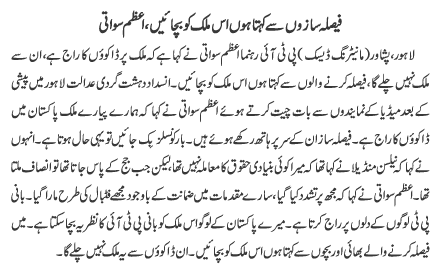 فیصلہ سازوں سے کہتا ہوں اس ملک کو بچائیں، اعظم سواتی
لاہور، پشاور (مانیٹرنگ ڈیسک) پی ٹی آئی رہنما اعظم سواتی نے کہا ہے کہ ملک پر ڈاکوؤں کا راج ہے، ان سے
ملک نہیں چلے گا، فیصلہ کرنے والوں سے کہتا ہوں اس ملک کو بچائیں۔ انسداد دہشت گردی عدالت لاہور میں پیشی
کے بعد میڈیا کے نمائندوں سے بات چیت کرتے ہوئے اعظم سواتی نے کہا کہ ہمارے پیارے ملک پاکستان میں
ڈاکوؤں کا راج ہے۔ فیصلہ سازان کے سر پر ہاتھ رکھے ہوئے ہیں۔ بار کونسلز بک جائیں تو یہی حال ہوتا ہے۔ انہوں
نے کہا کہ نیلسن منڈیلا نے کہا تھا کہ میرا کوئی بنیادی حقوق کا معاملہ نہیں تھا، لیکن جب جج کے پاس جاتا تھا تو انصاف ملتا
تھا۔ اعظم سواتی نے کہا کہ مجھ پر تشدد کیا گیا، سارے مقدمات میں ضمانت کے باوجود مجھے فٹبال کی طرح مارا گیا۔ بانی
پی ٹی لوگوں کے دلوں پر راج کرتا ہے۔ میرے پاکستان کے لوگو اس ملک کو بانی پی ٹی آئی کا نظریہ بچا سکتا ہے۔ میں
فیصلہ کرنے والے بھائی اور بچوں سے کہتا ہوں اس ملک کو بچائیں۔ ان ڈاکوؤں سے یہ ملک نہیں چلے گا۔